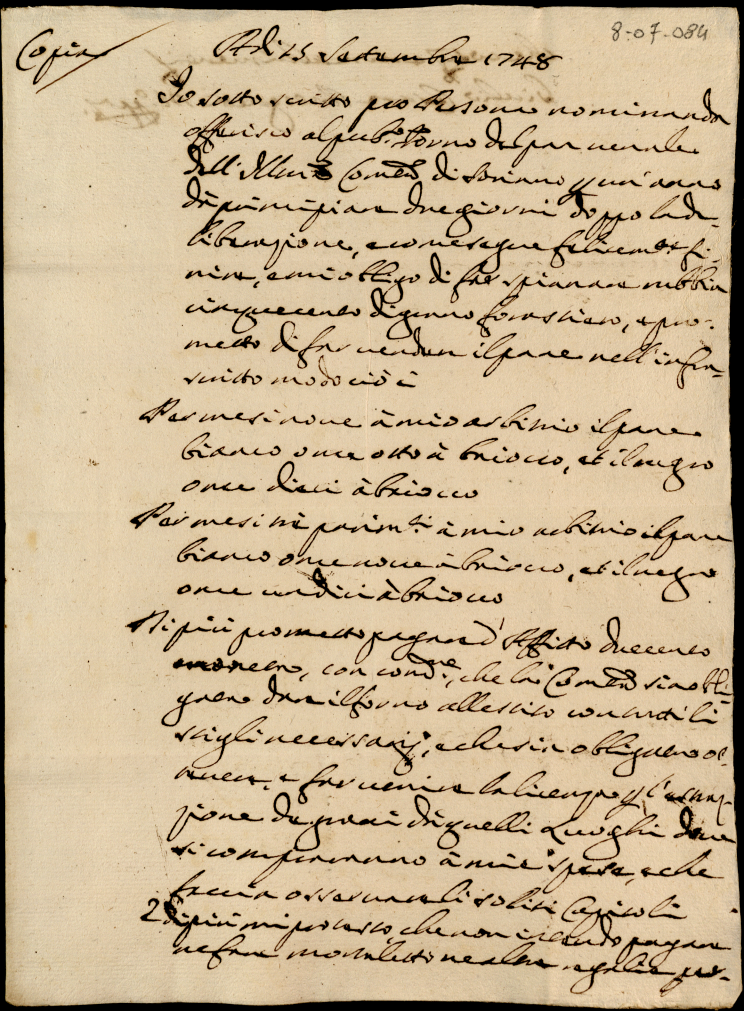 8-07-084
Copia
Adi 25 Settembre 1748
Io sotto scritto per Persona nominanda
offerisco al pub.o Forno del pan venale
dell' Illma Comtà di Soriano p un' anno
da principiare due giorni doppo la de-
liberazione, e come segue felicemte fi-
nire, e mi obligo di far spianare rubbia
cinquecento di grano forastiero, e pro-
metto di far vendere il pane nell' infra-
scritto modo cioè
Per mesi nove à mio arbitrio il pane
bianco once otto à baiocco, et il negro
once dieci à baiocco
Per mesi trè parimti à mio arbitrio il pane
bianco once nove à baiocco, et il negro
once undici à baiocco
Di più prometto pagare d' Affitto duecento
, con condne, che la Comtà sia obli-
gata dare il forno allestito con tutti li
stigli necessarij, e che sia obligata ot-
tenere, e far venire la licenza p l' estraz-
zione de grani da quelli Luoghi dove
si compreranno à mie spese, e che
faccia osservare li soliti Capitoli
2 di più mi protesto, che non intendo pagare
ne fare ne altra regalia per-